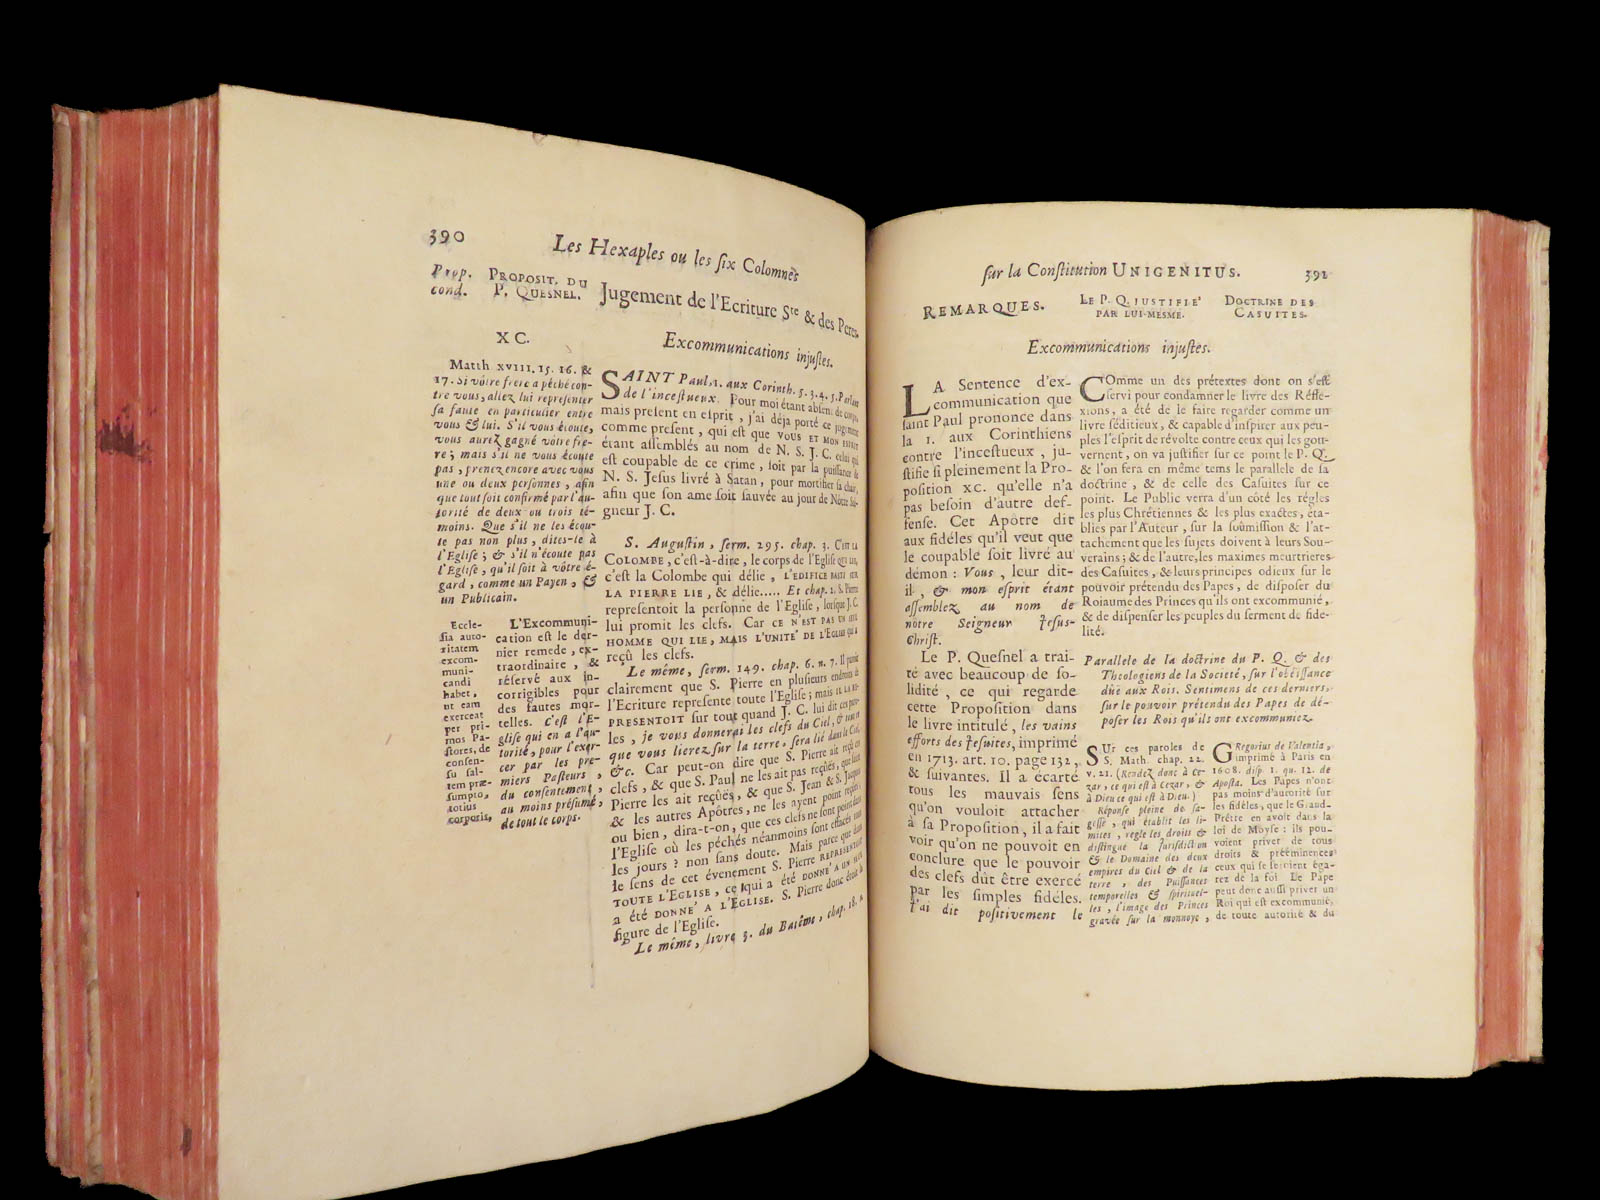 390
Les Hexaples ou les ſix Colomnes
Prop.
cond.
PROPOSIT. DU
P. QUESNEL.
Jugement de l'Ecriture Ste & des Peres.
XC.
Matth XVIII. 15. 16. &
17. Si vôtre frere a péché con-
tre vous, allez lui repreſenter
ſa faute en particulier entre
vous & lui. S'il vous écoute,
vous aurez gagné vôtre fre-
re; mais s'il ne vous écoute
pas, prenez encore avec vous
une ou deux perſonnes, afin
que tout ſoit confirmé par l'au-
torité de deux ou trois té-
moins. Que s'il ne les écou-
te pas non plus, dites-le à
l'Egliſe; & s'il n'écoute pas
l'Egliſe, qu'il ſoit à vôtre é-
gard, comme un Payen, &
un Publicain.
Eccle-
ſia auto-
ritatem
excom-
muni-
candi
habet,
ut eam
exerceat
per pri-
mos Pa-
ſtores, de
conſen-
ſu ſal-
tem præ-
ſumpto,
totius
corporis,
L'Excommuni-
cation eſt le der-
nier remede, ex-
traordinaire, &
réſervé aux in-
corrigibles pour
des fautes mor-
telles. C'eſt l'E-
gliſe qui en a l'au-
torité, pour l'exer-
cer par les pre-
miers Paſteurs,
du conſentement,
au moins préſumé,
de tout le corps.
Excommunications injuſtes.
SAINT Paul, 1. aux Corinth. 5. 3. 4. 5. Parlant
de l'inceſtueux. Pour moi étant abſent de corps,
mais preſent en eſprit, j'ai déja porté ce jugement
comme preſent, qui eſt que VOUS ET MON ESPRIT
étant aſſemblés au nom de N. S. J. C. celui qui
eſt coupable de ce crime, ſoit par la puiſſance de
N. S. Jeſus livré à Satan, pour mortifier ſa chair,
afin que ſon ame ſoit ſauvée au jour de Nôtre Sei-
gneur J. C.
S. Auguſtin, ſerm. 295. chap. 3. C'EST LA
COLOMBE, c'eſt-à-dire, le corps de l'Egliſe QUI LIE,
c'eſt la Colombe qui délie, L'EDIFICE BASTI SUR
LA PIERRE LIE, & délie..... Et chap. 2. S. Pierre
repreſentoit la perſonne de l'Egliſe, lorſque J. C.
lui promit les clefs. Car CE N'EST PAS UN SEUL
HOMME QUI LIE, MAIS L'UNITE' DE L'EGLISE qui a
reçû les clefs.
Le même, ſerm. 149. chap. 6. n. 7. Il paroît
clairement que S. Pierre en pluſieurs endroits de
l'Ecriture repreſente toute l'Egliſe; mais IL LA RE-
PRESENTOIT ſur tout quand J. C. lui dit ces paro-
les, je vous donnerai les clefs du Ciel, & tout ce
que vous lierez ſur la terre, ſera lié dans le Ciel,
&c. Car peut-on dire que S. Pierre ait reçû ces
clefs, & que S. Paul ne les ait pas reçûës, que ſaint
Pierre les ait reçûës, & que S. Jean & S. Jacques
& les autres Apôtres, ne les ayent point reçûës,
ou bien, dira-t-on, que ces clefs ne ſont point dans
l'Egliſe où les péchés néanmoins ſont effacés tous
les jours? non ſans doute. Mais parce que dans
le ſens de cet évenement S. Pierre REPRESENTOIT
TOUTE L'EGLISE, ce qui a été DONNE' A UN SEUL
a été DONNE' A L'EGLISE. S. Pierre donc étoit la
figure de l'Egliſe.
Le même, livre 3. du Batême, chap. 18. n.
ſur la Conſtitution UNIGENITUS.
391
REMARQUES.
LE P. Q. JUSTIFIE'
PAR LUI-MESME.
DOCTRINE DES
CASUITES.
Excommunications injuſtes.
LA Sentence d'ex-
communication que
ſaint Paul prononce dans
la 1. aux Corinthiens
contre l'inceſtueux, ju-
ſtifie ſi pleinement la Pro-
poſition XC. qu'elle n'a
pas beſoin d'autre def-
fenſe. Cet Apôtre dit
aux fidéles qu'il veut que
le coupable ſoit livré au
démon: Vous, leur dit-
il, & mon eſprit étant
aſſemblez au nom de
nôtre Seigneur Jeſus-
Chriſt.
Le P. Queſnel a trai-
té avec beaucoup de ſo-
lidité, ce qui regarde
cette Propoſition dans
le livre intitulé, les vains
efforts des Jeſuites, imprimé
en 1713. art. 10. page 132,
& ſuivantes. Il a écarté
tous les mauvais ſens
qu'on vouloit attacher
à ſa Propoſition, il a fait
voir qu'on ne pouvoit en
conclure que le pouvoir
des clefs dût être exercé
par les ſimples fidéles.
J'ai dit poſitivement le
COmme un des prétextes dont on s'eſt
ſervi pour condamner le livre des Réfle-
xions, a été de le faire regarder comme un
livre ſéditieux, & capable d'inſpirer aux peu-
ples l'eſprit de révolte contre ceux qui les gou-
vernent, on va juſtifier ſur ce point le P. Q.
& l'on fera en même tems le parallele de ſa
doctrine, & de celle des Caſuites ſur ce
point. Le Public verra d'un côté les régles
les plus Chrétiennes & les plus exactes, éta-
blies par l'Auteur, ſur la ſoûmiſſion & l'at-
tachement que les ſujets doivent à leurs Sou-
verains; & de l'autre, les maximes meurtrieres
des Caſuites, & leurs principes odieux ſur le
pouvoir prétendu des Papes, de diſpoſer du
Roiaume des Princes qu'ils ont excommunié,
& de diſpenſer les peuples du ſerment de fide-
lité.
Parallele de la doctrine du P. Q. & des
Theologiens de la Societé, ſur l'obéïſſance
dûë aux Rois. Sentimens de ces derniers,
ſur le pouvoir prétendu des Papes de dé-
poſer les Rois qu'ils ont excommuniez.
SUr ces paroles de
S. Math. chap. 22.
v. 21. (Rendez donc à Ce-
zar, ce qui eſt à Cezar, &
à Dieu ce qui eſt à Dieu.)
Réponſe pleine de ſa-
geſſe, qui établit les li-
mites, regle les droits &
diſtingue la Jurisdiction
& le Domaine des deux
empires du Ciel & de la
terre, des Puiſſances
temporelles & ſpirituel-
les, l'image des Princes
gravée ſur la monnoye,
GRegorius de Valentia,
imprimé à Paris en
1608. diſp. 1. qu. 12. de
Apoſta. Les Papes n'ont
pas moins d'autorité ſur
les fidéles, que le Grand-
Prêtre en avoit dans la
loi de Moyſe: ils pou-
voient priver de tous
droits & prééminences
ceux qui ſe ſeroient éga-
rez de la foi. Le Pape
peut donc auſſi priver un
Roi qui eſt excommunié,
de toute autorité & du